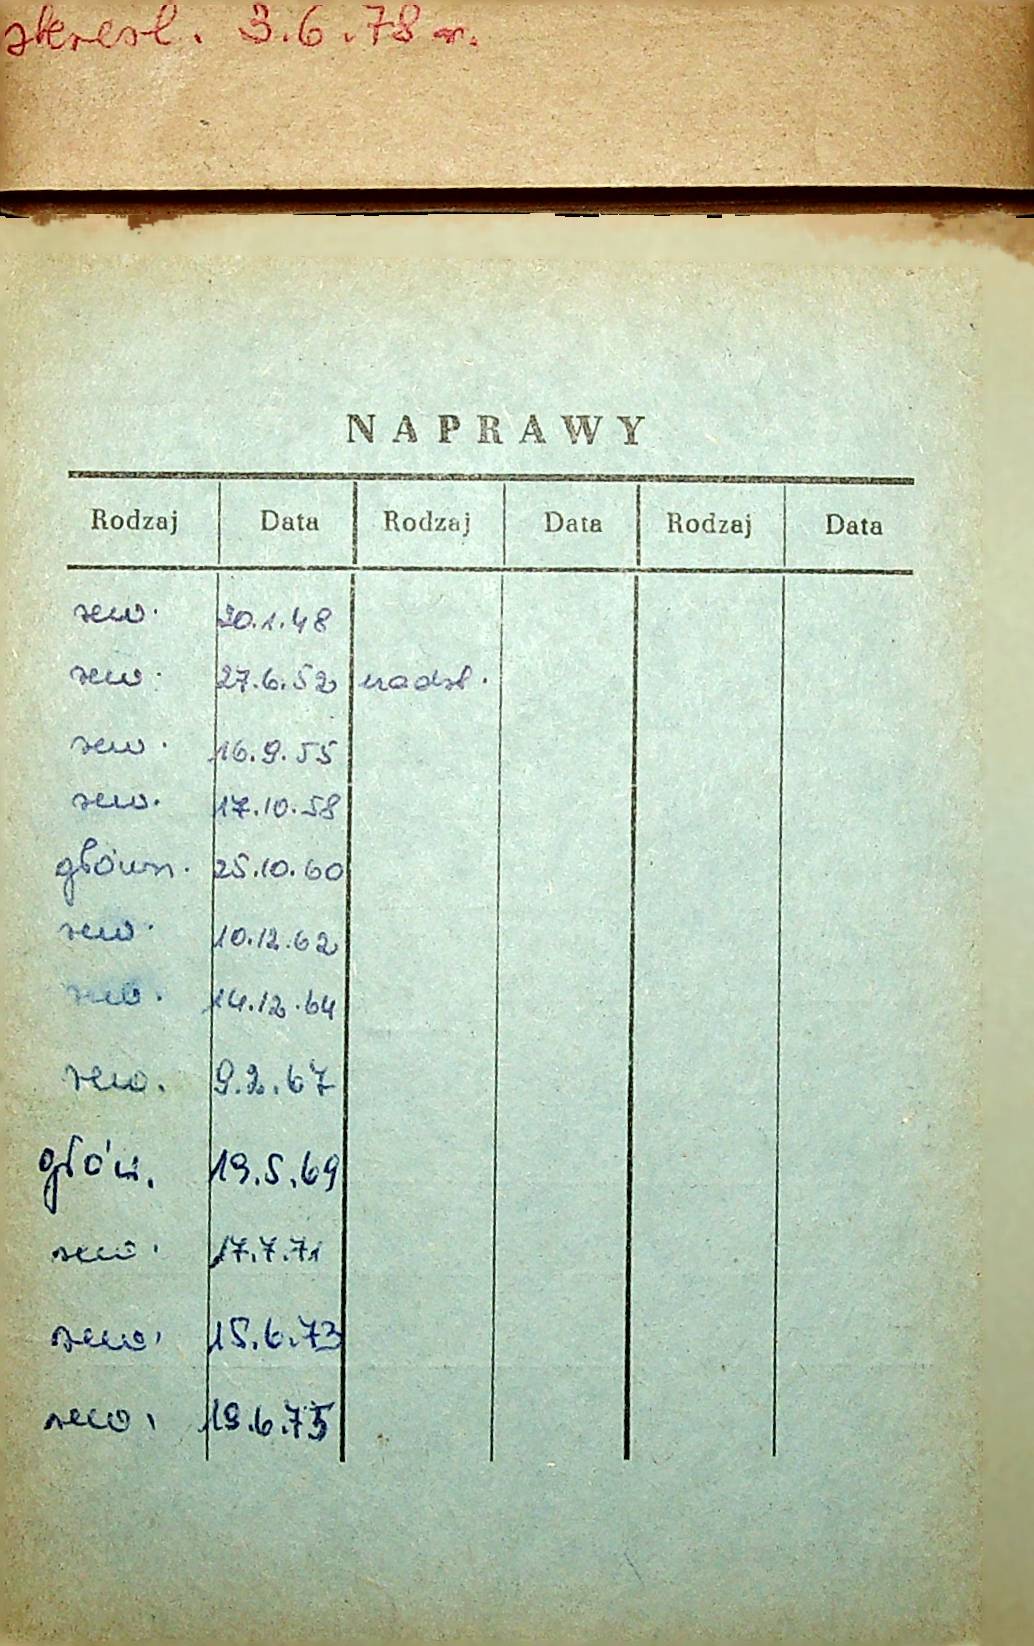 skreśl. 3.6.78 r.
NAPRAWY
Rodzaj Data Rodzaj Data Rodzaj Data
rew. 20.1.48
rew. 27.6.52 nadzl.
rew. 16.9.55
rew. 17.10.58
główn. 25.10.60
rew. 10.12.62
rew. 14.12.64
rew. 9.2.67
głów. 19.5.69
rew. 17.7.71
rew. 15.6.73
rew. 19.6.75